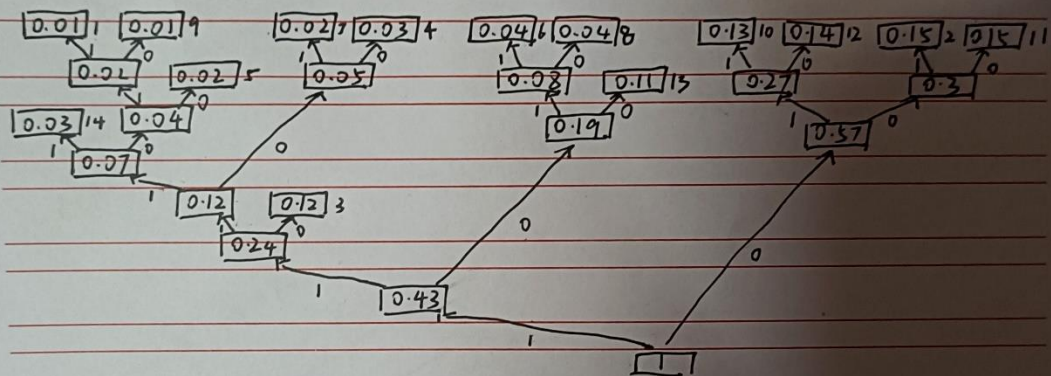 0.01 1 0.01 9 0.02 7 0.03 4 0.04 6 0.04 8 0.13 10 0.14 12 0.15 2 0.15 11
1 0 1 0 1 0 1 0 1 0
0.02 0.02 5 0.05 0.08 0.11 13 0.27 0.3
1 0 1 0 1 0
0.03 14 0.04 0.19 0.57
1 0 0
0.07
1 0.12 0.12 3
1 0 0 0
0.24
1 0.43
1
1